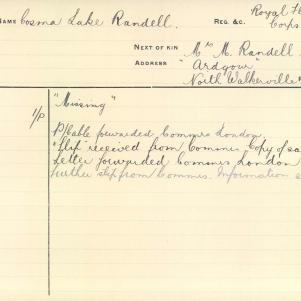 NAME Cosma Lake Randell. REG. &C. Royal Fl
Corps.
NEXT OF KIN Mrs M. Randell
ADDRESS "Ardgour"
North Walkerville
1/P "Missing"
P/Cable forwarded Commrs London.
"flip" received from Commrs Copy of sa
Letter forwarded Commrs London
further slip from Commrs. Information